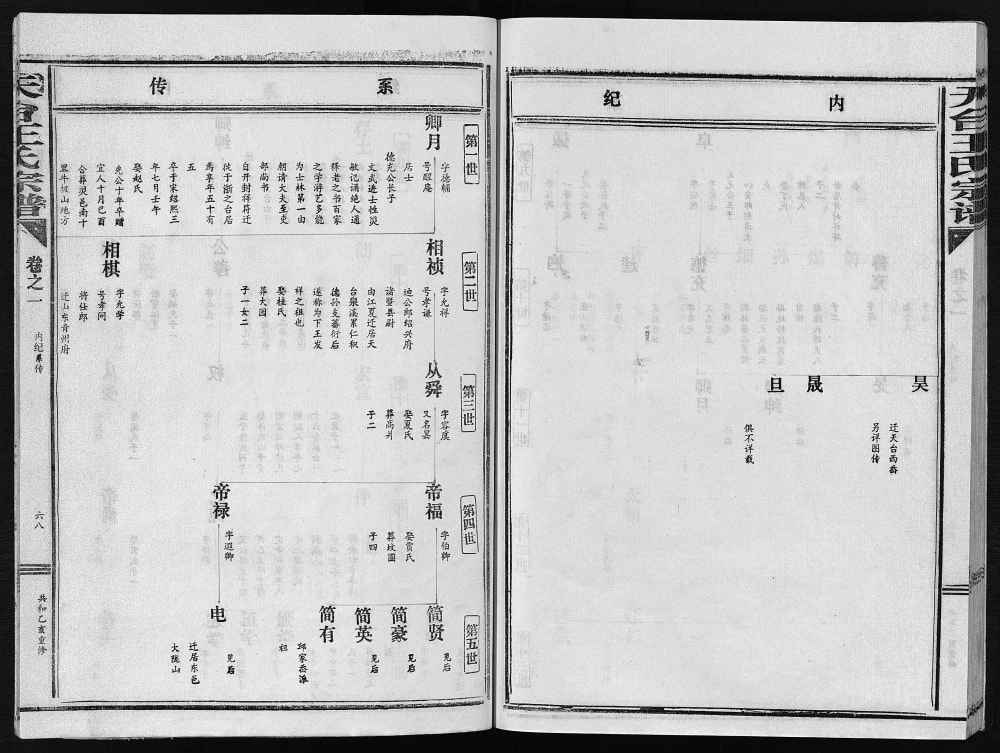 内纪
昊
迁天台西乡
另详图传
晟
旦
俱不详载
天台王氏宗谱
系传
第一世
卿月
字德辅
号醒庵
居士
德充公长子
文武进士性灵
敏记诵绝人通
释老之书百家
之学游艺多能
为士林第一由
朝请大夫至吏
部尚书
自开封祥符迁
徙于浙之台居
焉享年五十有
五
卒于宋绍熙三
年七月壬午
娶赵氏
先公十年卒赠
宜人十月己酉
合葬灵邑南十
里牛坂山地方
第二世
相祯
字允祥
号孝谦
迪公郎绍兴府
诸暨县尉
由江夏迁居天
台泉溪累仁积
德孙支蕃衍后
遂称为下王发
祥之祖也
娶桂氏
葬大园
子一女二
相棋
字允学
号孝问
将仕郎
迁山东青州府
第三世
从舜
字容虞
又名罢
娶夏氏
葬高爿
子二
第四世
帝福
字伯卿
娶贾氏
葬坟园
子四
帝禄
字遐卿
第五世
简贤
见后
简豪
见后
简英
见后
简有
邱家岙派
祖
电
见后
迁居东邑
大陇山
卷之一
内纪系传
六八
共和乙亥重修